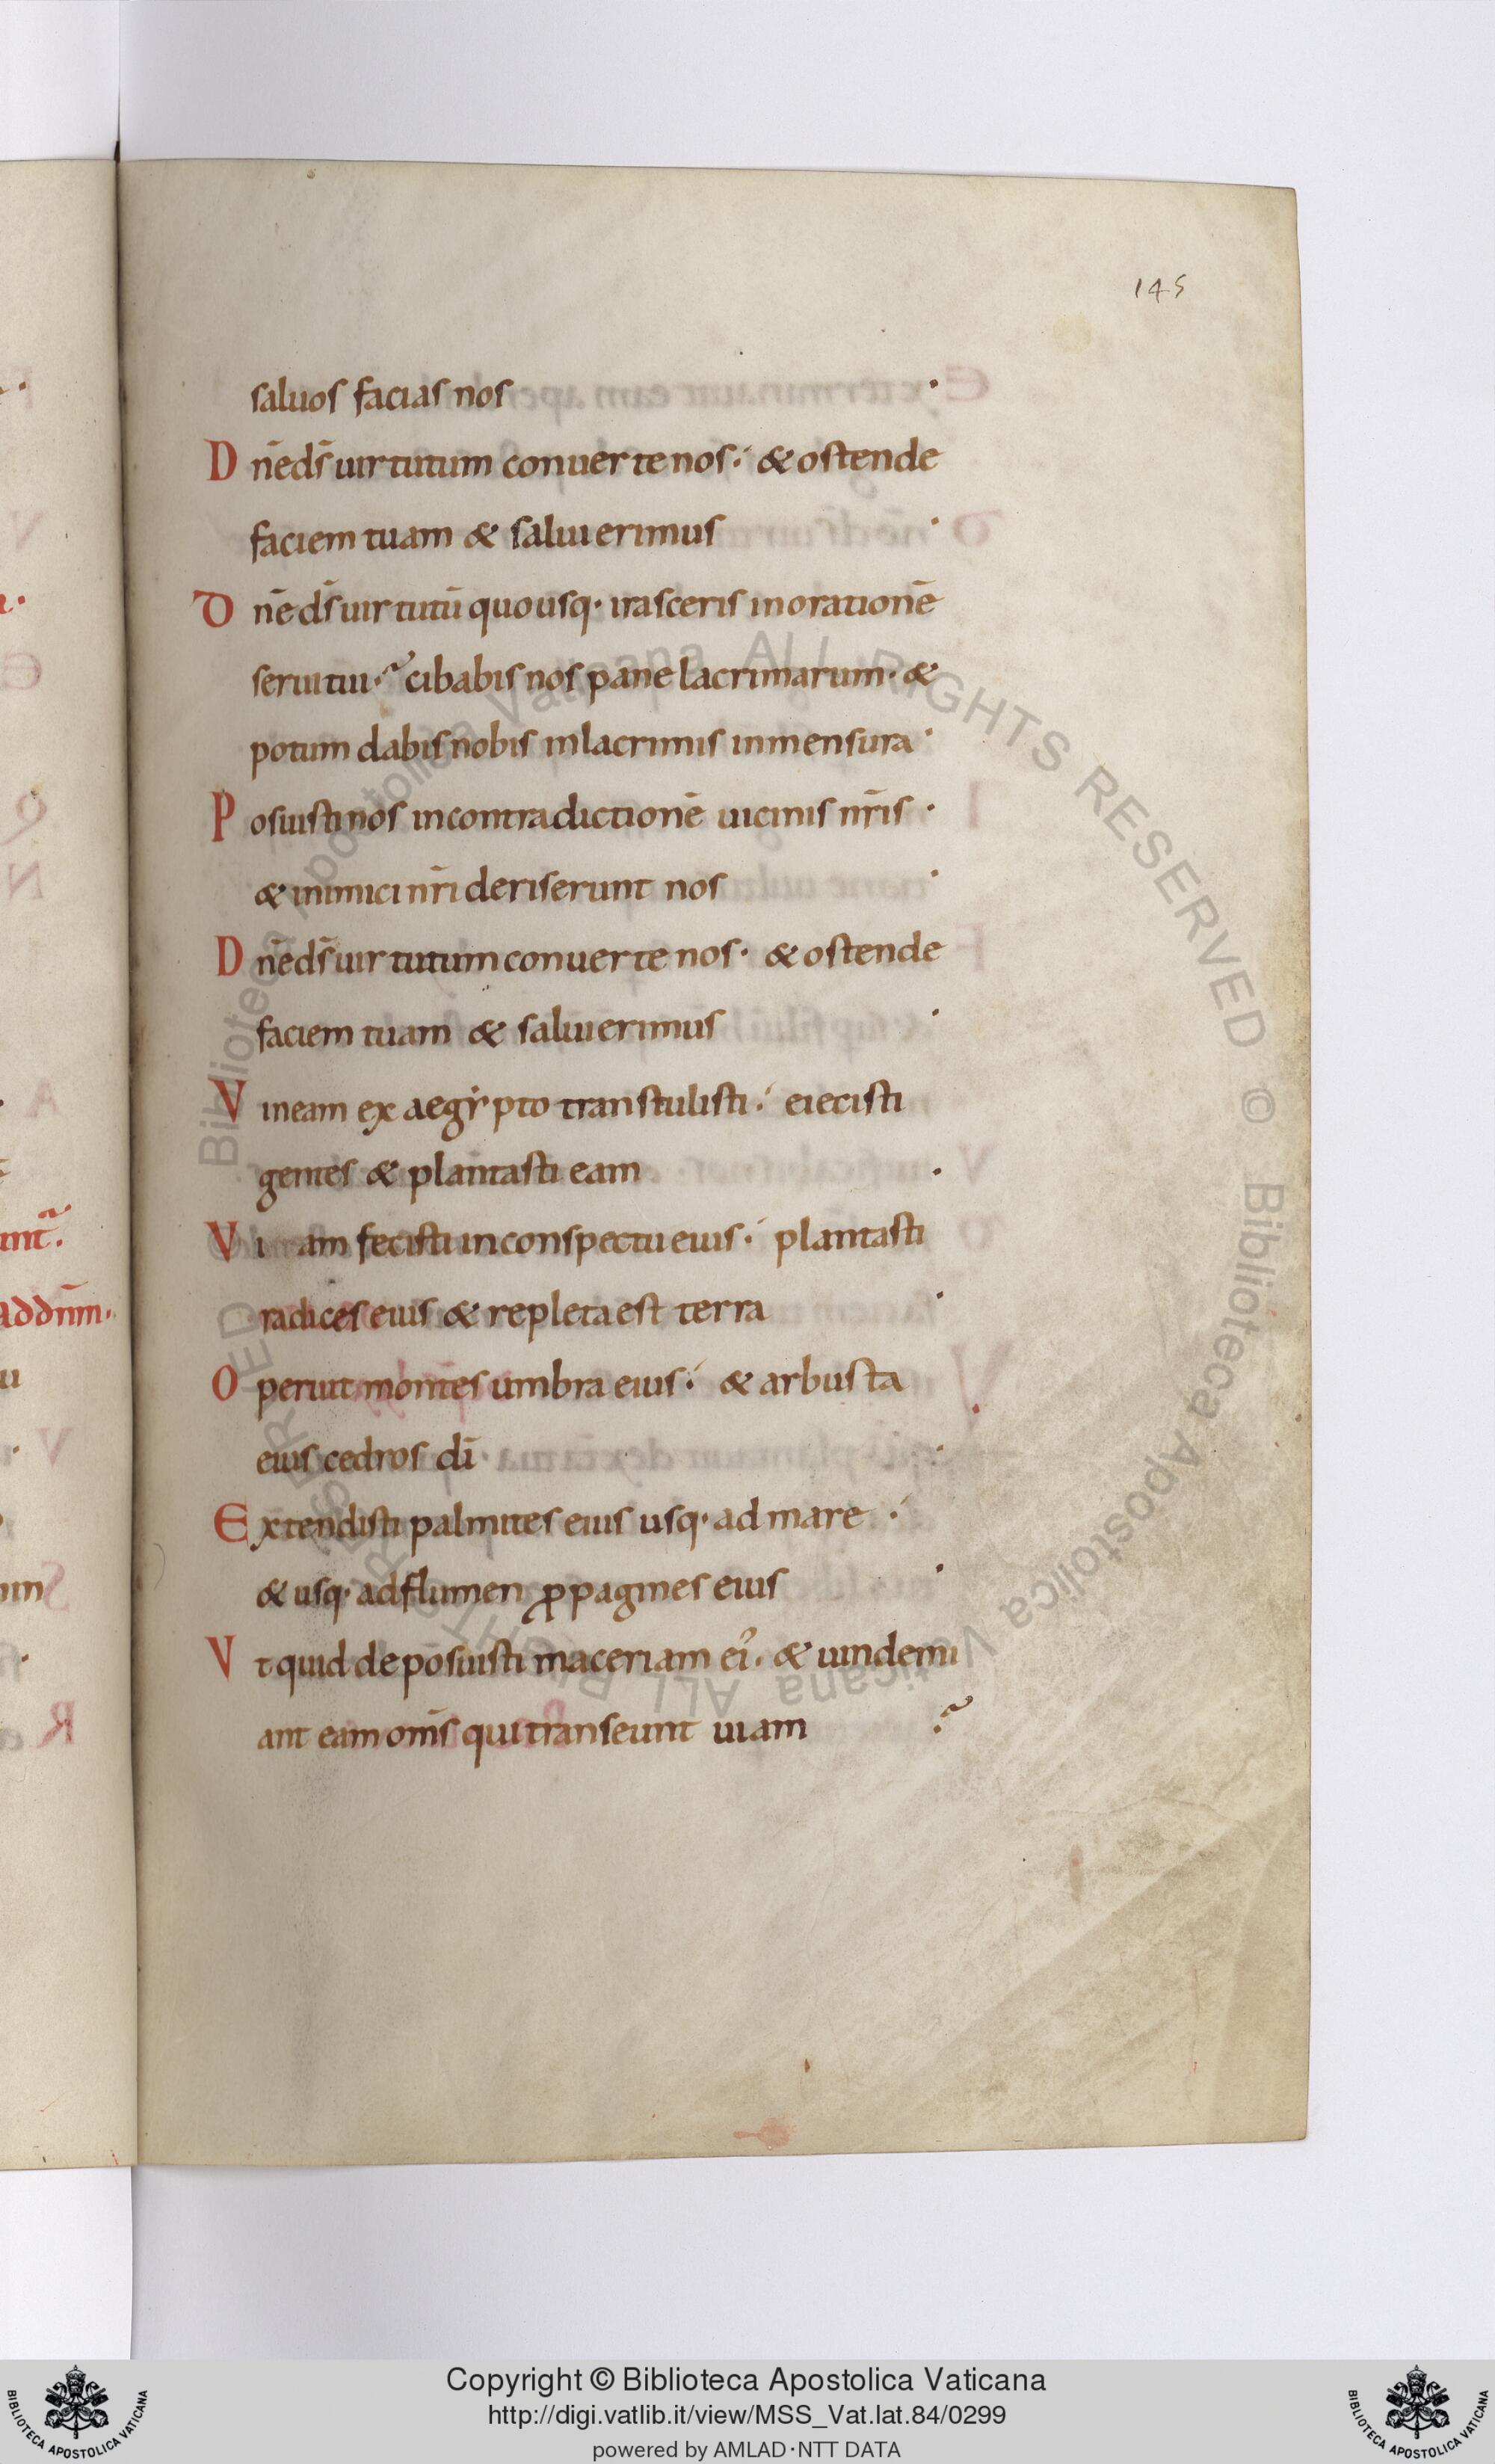 145
saluos facias nos ·
D n̄e ds̄ uirtutum conuerte nos ·́ & ostende
faciem tuam & salui erimus ·
D n̄e ds̄ uirtutū quousq· irasceris in orationē
serui tui ·~ cibabis nos pane lacrimarum · &
potum dabis nobis in lacrimis in mensura ·
P osuisti nos in contradictionē uicinis nr̄is ·
& inimici nr̄i deriserunt nos ·
D n̄e ds̄ uirtutum conuerte nos · & ostende
faciem tuam & salui erimus ·
V ineam ex aegẏpto transtulisti ·́ eiecisti
gentes & plantasti eam ·
V i am fecisti in conspectu eius ·́ plantasti
radices eius & repleta est terra ·
O peruit montes umbra eius ·́ & arbusta
eius cedros dī ·
E xtendisti palmites eius usq· ad mare ·́
& usq· ad flumen ꝓpagines eius ·
V t quid deposuisti maceriam ei᾽ · & uindemi
ant eam om̄s qui transeunt uiam ·~
Copyright © Biblioteca Apostolica Vaticana
http://digi.vatlib.it/view/MSS_Vat.lat.84/0299
powered by AMLAD·NTT DATA
BIBLIOTECA APOSTOLICA VATICANA
BIBLIOTECA APOSTOLICA VATICANA